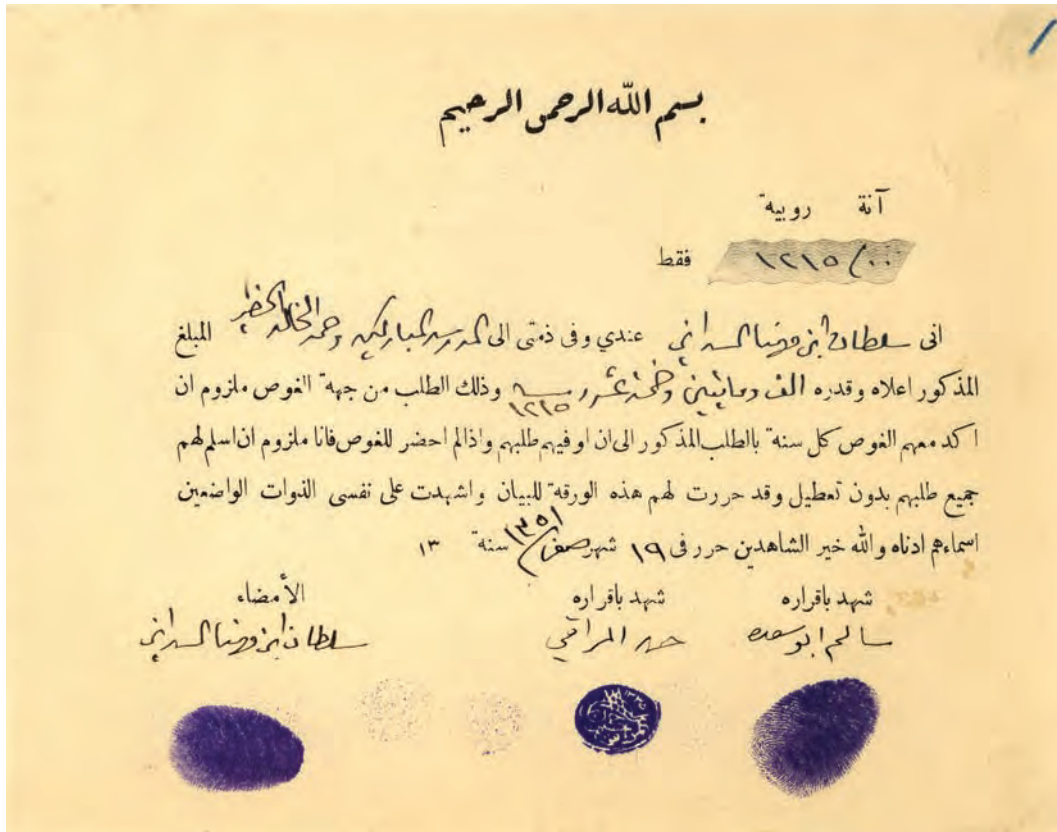 بسم الله الرحمن الرحيم
آنة روبية
١٢١٥/٠٠ فقط
انى سلطان ابن عندي وفى ذمتى الى وحمد الخالد الخضير المبلغ
المذكور اعلاه وقدره الف ومايتين وخمسة عشر ربيه ١٢١٥ وذلك الطلب من جهة الغوص ملزوم ان
اكد معهم الغوص كل سنة بالطلب المذكور الى ان اوفيهم طلبهم واذالم احضر للغوص فانا ملزوم ان اسلم لهم
جميع طلبهم بدون تعطيل وقد حررت لهم هذه الورقة للبيان واشهدت على نفسى الذوات الواضعين
اسماءهم ادناه والله خير الشاهدين حرر فى ١٩ شهر صفر ١٣٥١ سنة ١٣
شهد باقراره شهد باقراره الأمضاء
سالم ابو سعده حمد المراقي سلطان ابن